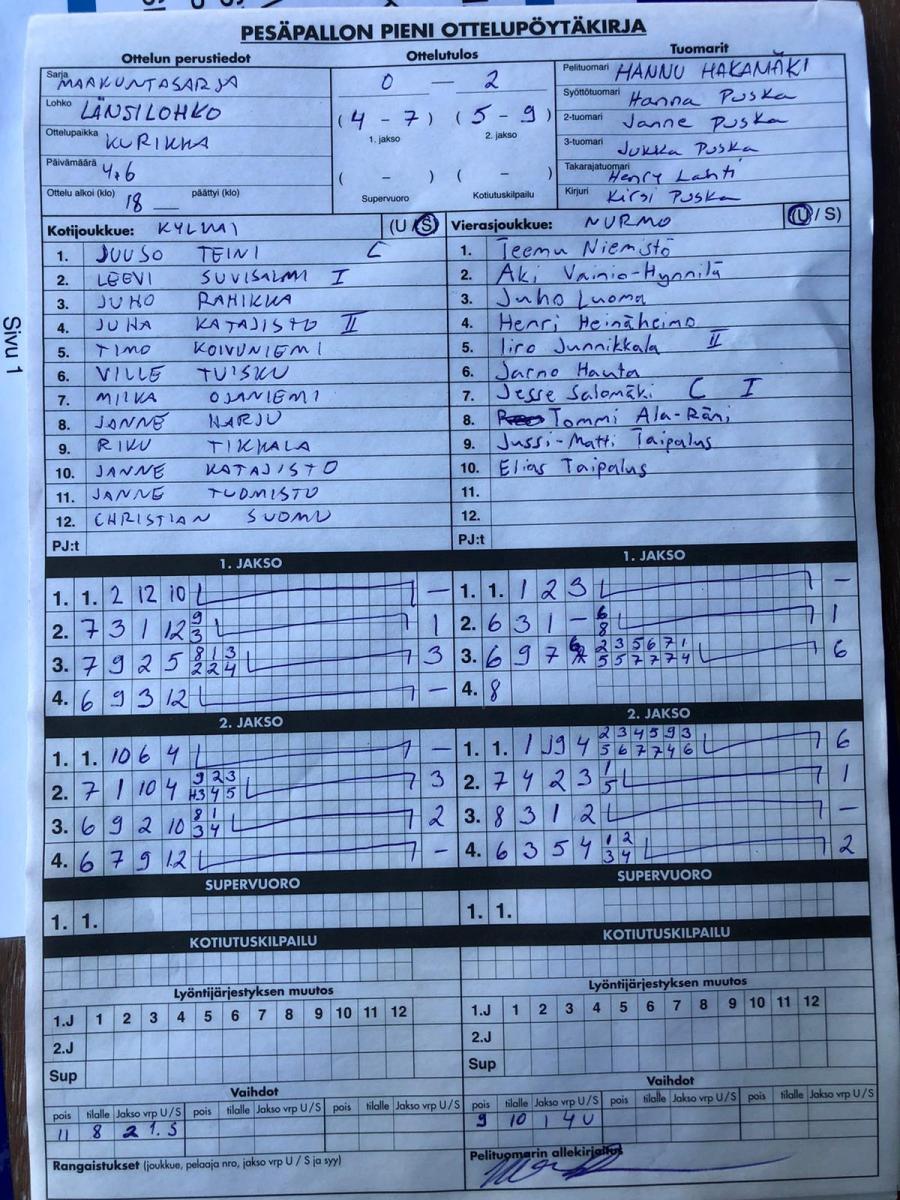 PESÄPALLON PIENI OTTELUPÖYTÄKIRJA
Ottelun perustiedot
Sarja MAAKUNTASARJA
Lohko LÄNSILOHKO
Ottelupaikka KURIKKA
Päivämäärä 4.6
Ottelu alkoi (klo) 18 päättyi (klo)
Ottelutulos
0 – 2
( 4 - 7 ) ( 5 - 9 )
1. jakso 2. jakso
( - ) ( - )
Supervuoro Kotiutuskilpailu
Tuomarit
Pelituomari HANNU HAKAMÄKI
Syöttötuomari Hanna Puska
2-tuomari Janne Puska
3-tuomari Jukka Puska
Takarajatuomari Henry Lahti
Kirjuri Kirsi Puska
Sivu 1
Kotijoukkue: (U / S)
1. JUUSO TEINI C
2. LEEVI SUVISALMI I
3. JUHO RAHIKKA
4. JUHA KATAJISTO II
5. TIMO KOIVUNIEMI
6. VILLE TUISKU
7. MIIKA OJANIEMI
8. JANNE HARJU
9. RIKU TIKKALA
10. JANNE KATAJISTO
11. JANNE TUOMISTO
12. CHRISTIAN SUOMU
PJ:t
Vierasjoukkue: NURMO (U / S)
1. Teemu Niemistö
2. Aki Vainio-Hynnilä
3. Juho Luoma
4. Henri Heinäheimo
5. Iiro Junnikkala II
6. Jarno Hauta
7. Jesse Salomäki C I
8. Tommi Ala-Räni
9. Jussi-Matti Taipalus
10. Elias Taipalus
11.
12.
PJ:t
1. JAKSO
1. 1. 2 12 10 –
2. 7 3 1 12 9 1
3
3. 7 9 2 5 8 1 3 3
2 2 4
4. 6 9 3 12 –
1. JAKSO
1. 1. 1 2 3 –
2. 6 3 1 – 6 1
8
3. 6 9 7 2 3 5 6 7 1 6
5 5 7 7 7 4
4. 8
2. JAKSO
1. 1. 10 6 4 –
2. 7 1 10 4 9 2 3 3
3 4 5
3. 6 9 2 10 8 1 2
3 4
4. 6 7 9 12 –
2. JAKSO
1. 1. 1 9 4 2 3 4 5 9 3 6
5 6 7 7 4 6
2. 7 4 2 3 1 1
5
3. 8 3 1 2 –
4. 6 3 5 4 1 2 2
3 4
SUPERVUORO
1. 1.
SUPERVUORO
1. 1.
KOTIUTUSKILPAILU
KOTIUTUSKILPAILU
Lyöntijärjestyksen muutos
1.J 1 2 3 4 5 6 7 8 9 10 11 12
2.J
Sup
Lyöntijärjestyksen muutos
1.J 1 2 3 4 5 6 7 8 9 10 11 12
2.J
Sup
Vaihdot
pois tilalle Jakso vrp U / S pois tilalle Jakso vrp U / S pois tilalle Jakso vrp U / S
11 8 2 1. S
Vaihdot
pois tilalle Jakso vrp U / S pois tilalle Jakso vrp U / S pois tilalle Jakso vrp U / S
9 10 1 4 U
Rangaistukset (joukkue, pelaaja nro, jakso vrp U / S ja syy)
Pelituomarin allekirjoitus